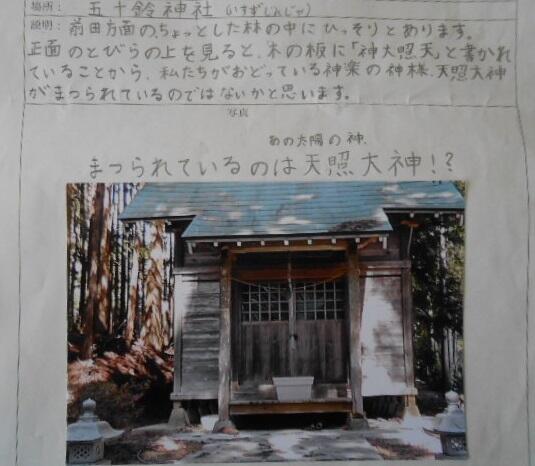 場所： 五十鈴神社(いすずじんじゃ)
説明：前田方面のちょっとした林の中にひっそりとあります。
正面のとびらの上を見ると、木の板に「神大照天」と書かれ
ていることから、私たちがおどっている神楽の神様、天照大神
がまつられているのではないかと思います。
写真
あの太陽の神、
まつられているのは天照大神！？